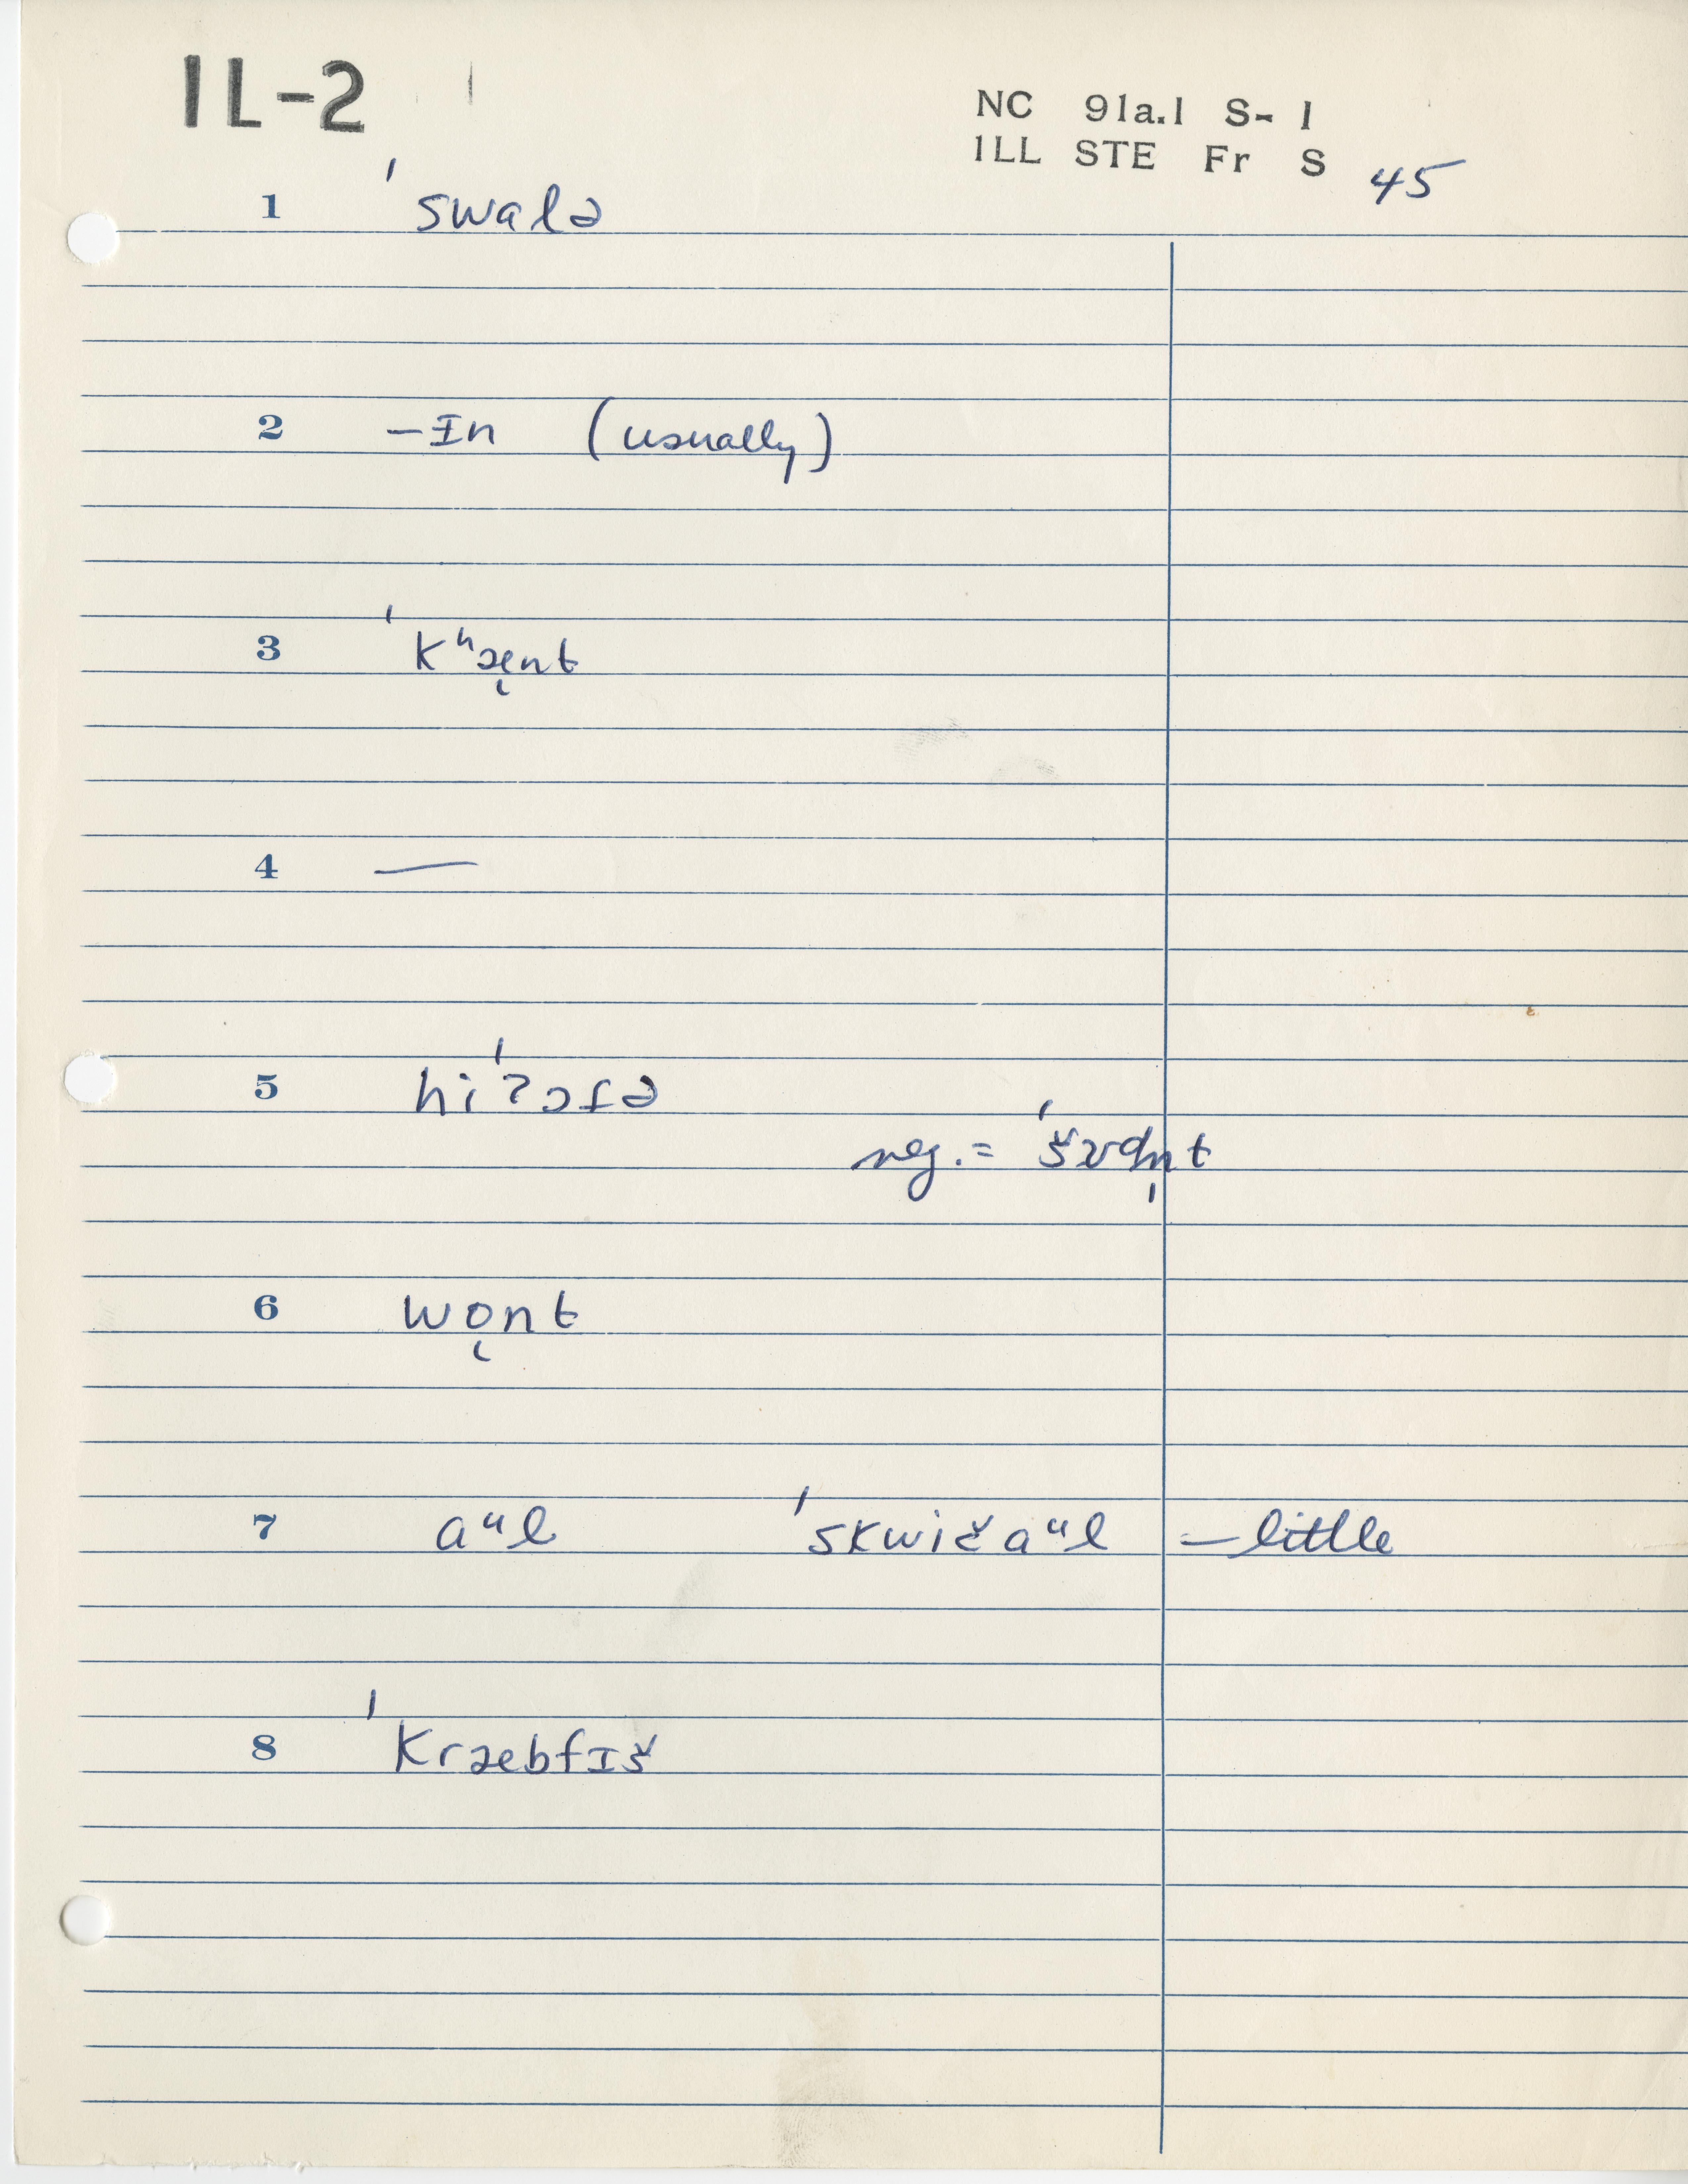 IL-2
NC 91a.1 S- 1
ILL STE Fr S 45
1 ˈswalə
2 -ɪn (usually)
3 ˈkʰæ̨nt
4 —
5 hiˈʔɔfə
neg. = ˈšʊdn̩t
6 wǫnt
7 aᵘl ˈskwičaᵘl – little
8 ˈkræbfɪš